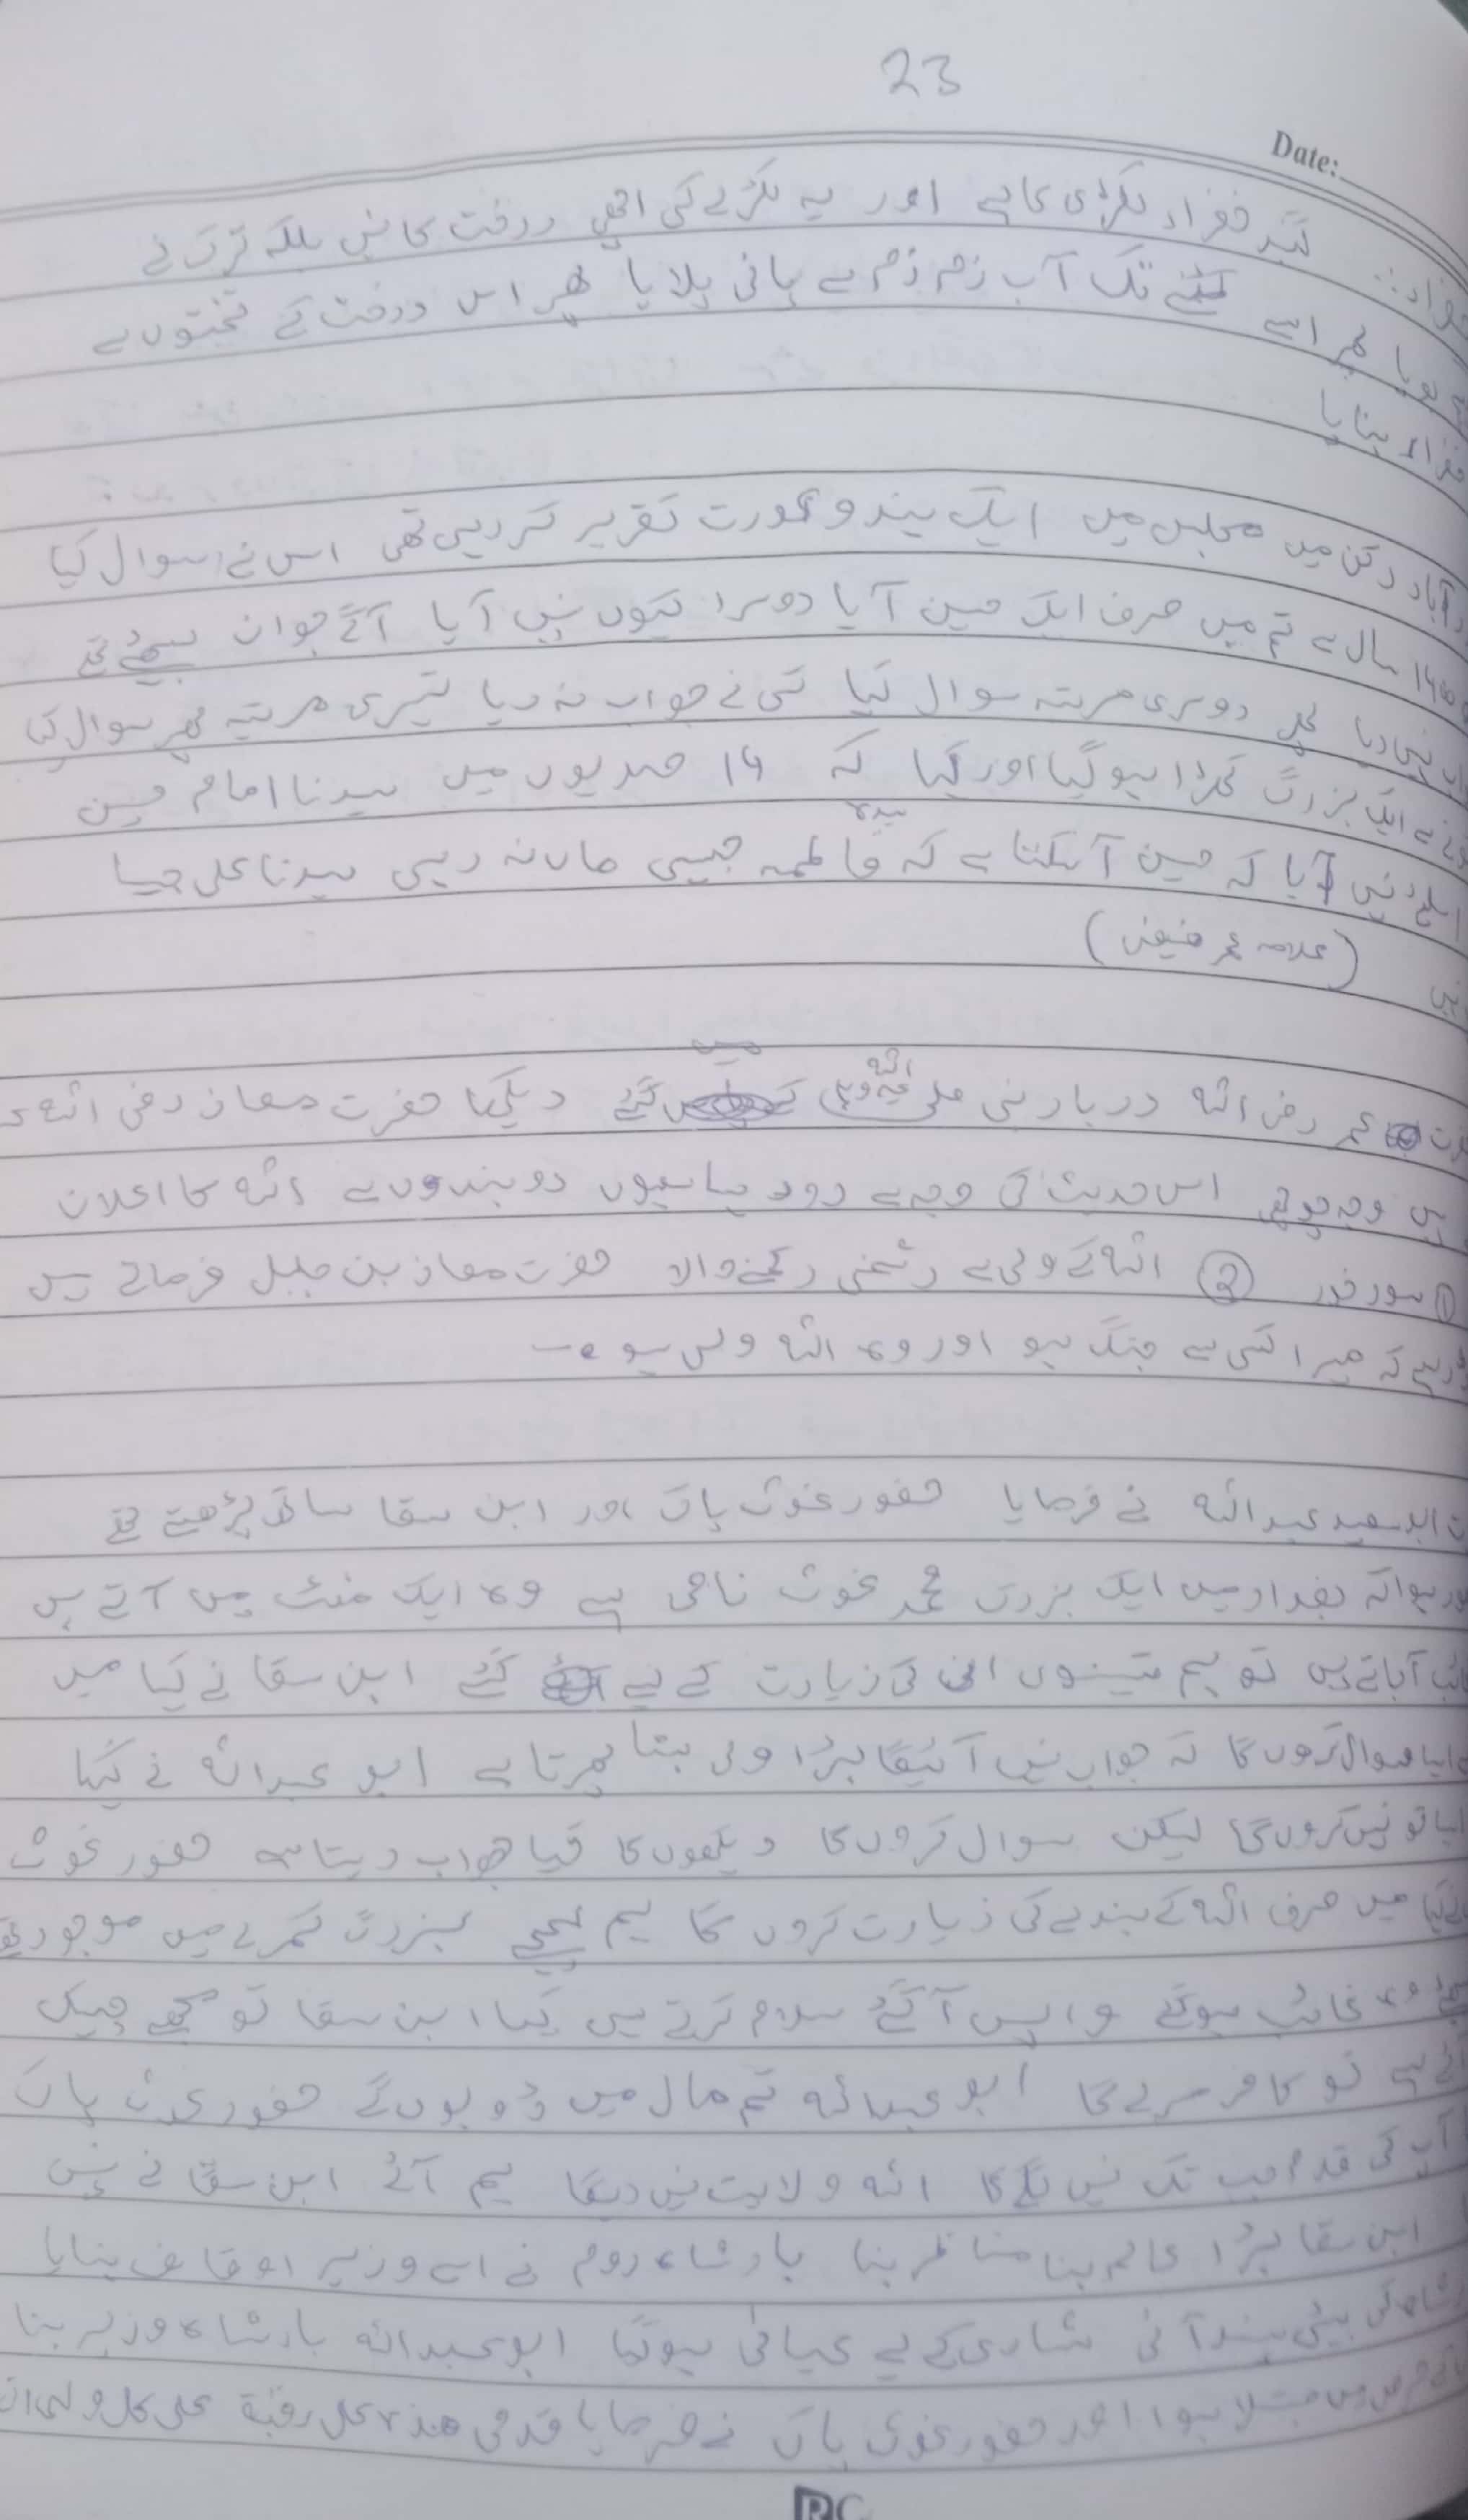 23
Date:
گنبد خضراء لکڑی کا ہے اور یہ لکڑے کی اچھی درخت کا نہیں بلکہ ترک نے
بویا پھر اسے کٹنے تک آب زم زم سے پانی پلایا پھر اس درخت کے تختوں سے
خضراء بنایا
آباد دکن میں مجلس میں ایک ہندو عورت تقریر کر رہی تھی اس نے سوال کیا
1400 سال سے تم میں صرف ایک حسین آیا دوسرا کیوں نہیں آیا آگے جوان بیٹھے تھے
دوسری مرتبہ سوال کیا کسی نے جواب نہ دیا تیسری مرتبہ پھر سوال کیا
ایک بزرگ کھڑا ہو گیا اور کہا کہ 14 صدیوں میں سیدنا امام حسین
نہیں آیا کہ حسین آ سکتا ہے کہ سیدہ فاطمہ جیسی ماں نہ رہی سیدنا علی جیسا
(علامہ عمر فیضی)
عمر رضی اللہ دربار نبی صلی اللہ علیہ وسلم میں گئے دیکھا حضرت معاذ رضی اللہ
وجہ پوچھی اس حدیث کی وجہ سے رو رہا ہوں دو بندوں سے اللہ کا اعلان
① سود خور ② اللہ کے ولی سے دشمنی رکھنے والا حضرت معاذ بن جبل فرماتے ہیں
میرا کسی سے جنگ ہو اور وہ اللہ ولی ہو۔
ابو سعید عبداللہ نے فرمایا حضور غوث پاک اور ابن سقا ساتھ پڑھتے تھے
ہوا کہ بغداد میں ایک بزرگ محمد غوث نامی ہے وہ ایک منٹ میں آتے ہیں
تو ہم تینوں ان کی زیارت کے لیے گئے ابن سقا نے کہا میں
ایسا سوال کروں گا کہ جواب نہیں آئیگا بڑا ولی بنتا پھرتا ہے ابو عبداللہ نے کہا
ایسا تو نہیں کروں گا لیکن سوال کروں گا دیکھوں گا کیا جواب دیتا ہے حضور غوث
نے کہا میں صرف اللہ کے بندے کی زیارت کروں گا ہم پہنچے بزرگ کمرے میں موجود تھے
وہ غائب ہو گئے واپس آ گئے سلام کرتے ہیں کہا ابن سقا تو مجھے چیک
تو کافر مرے گا ابو عبداللہ تم مال میں ڈوبوں گے حضور غوث پاک
آپ کی قدم جب تک نہیں لگے گا اللہ ولایت نہیں دیگا ہم آئے ابن سقا نے
ابن سقا بڑا عالم بنا مناظر بنا بادشاہ روم نے اسے وزیر اوقاف بنایا
کی بیٹی پسند آئی شادی کے لیے عیسائی ہو گیا ابو عبداللہ بادشاہ وزیر بنا
میں مبتلا ہوا اور حضور غوث پاک نے فرمایا قدمی ھذہ علی رقبۃ علی کل ولی